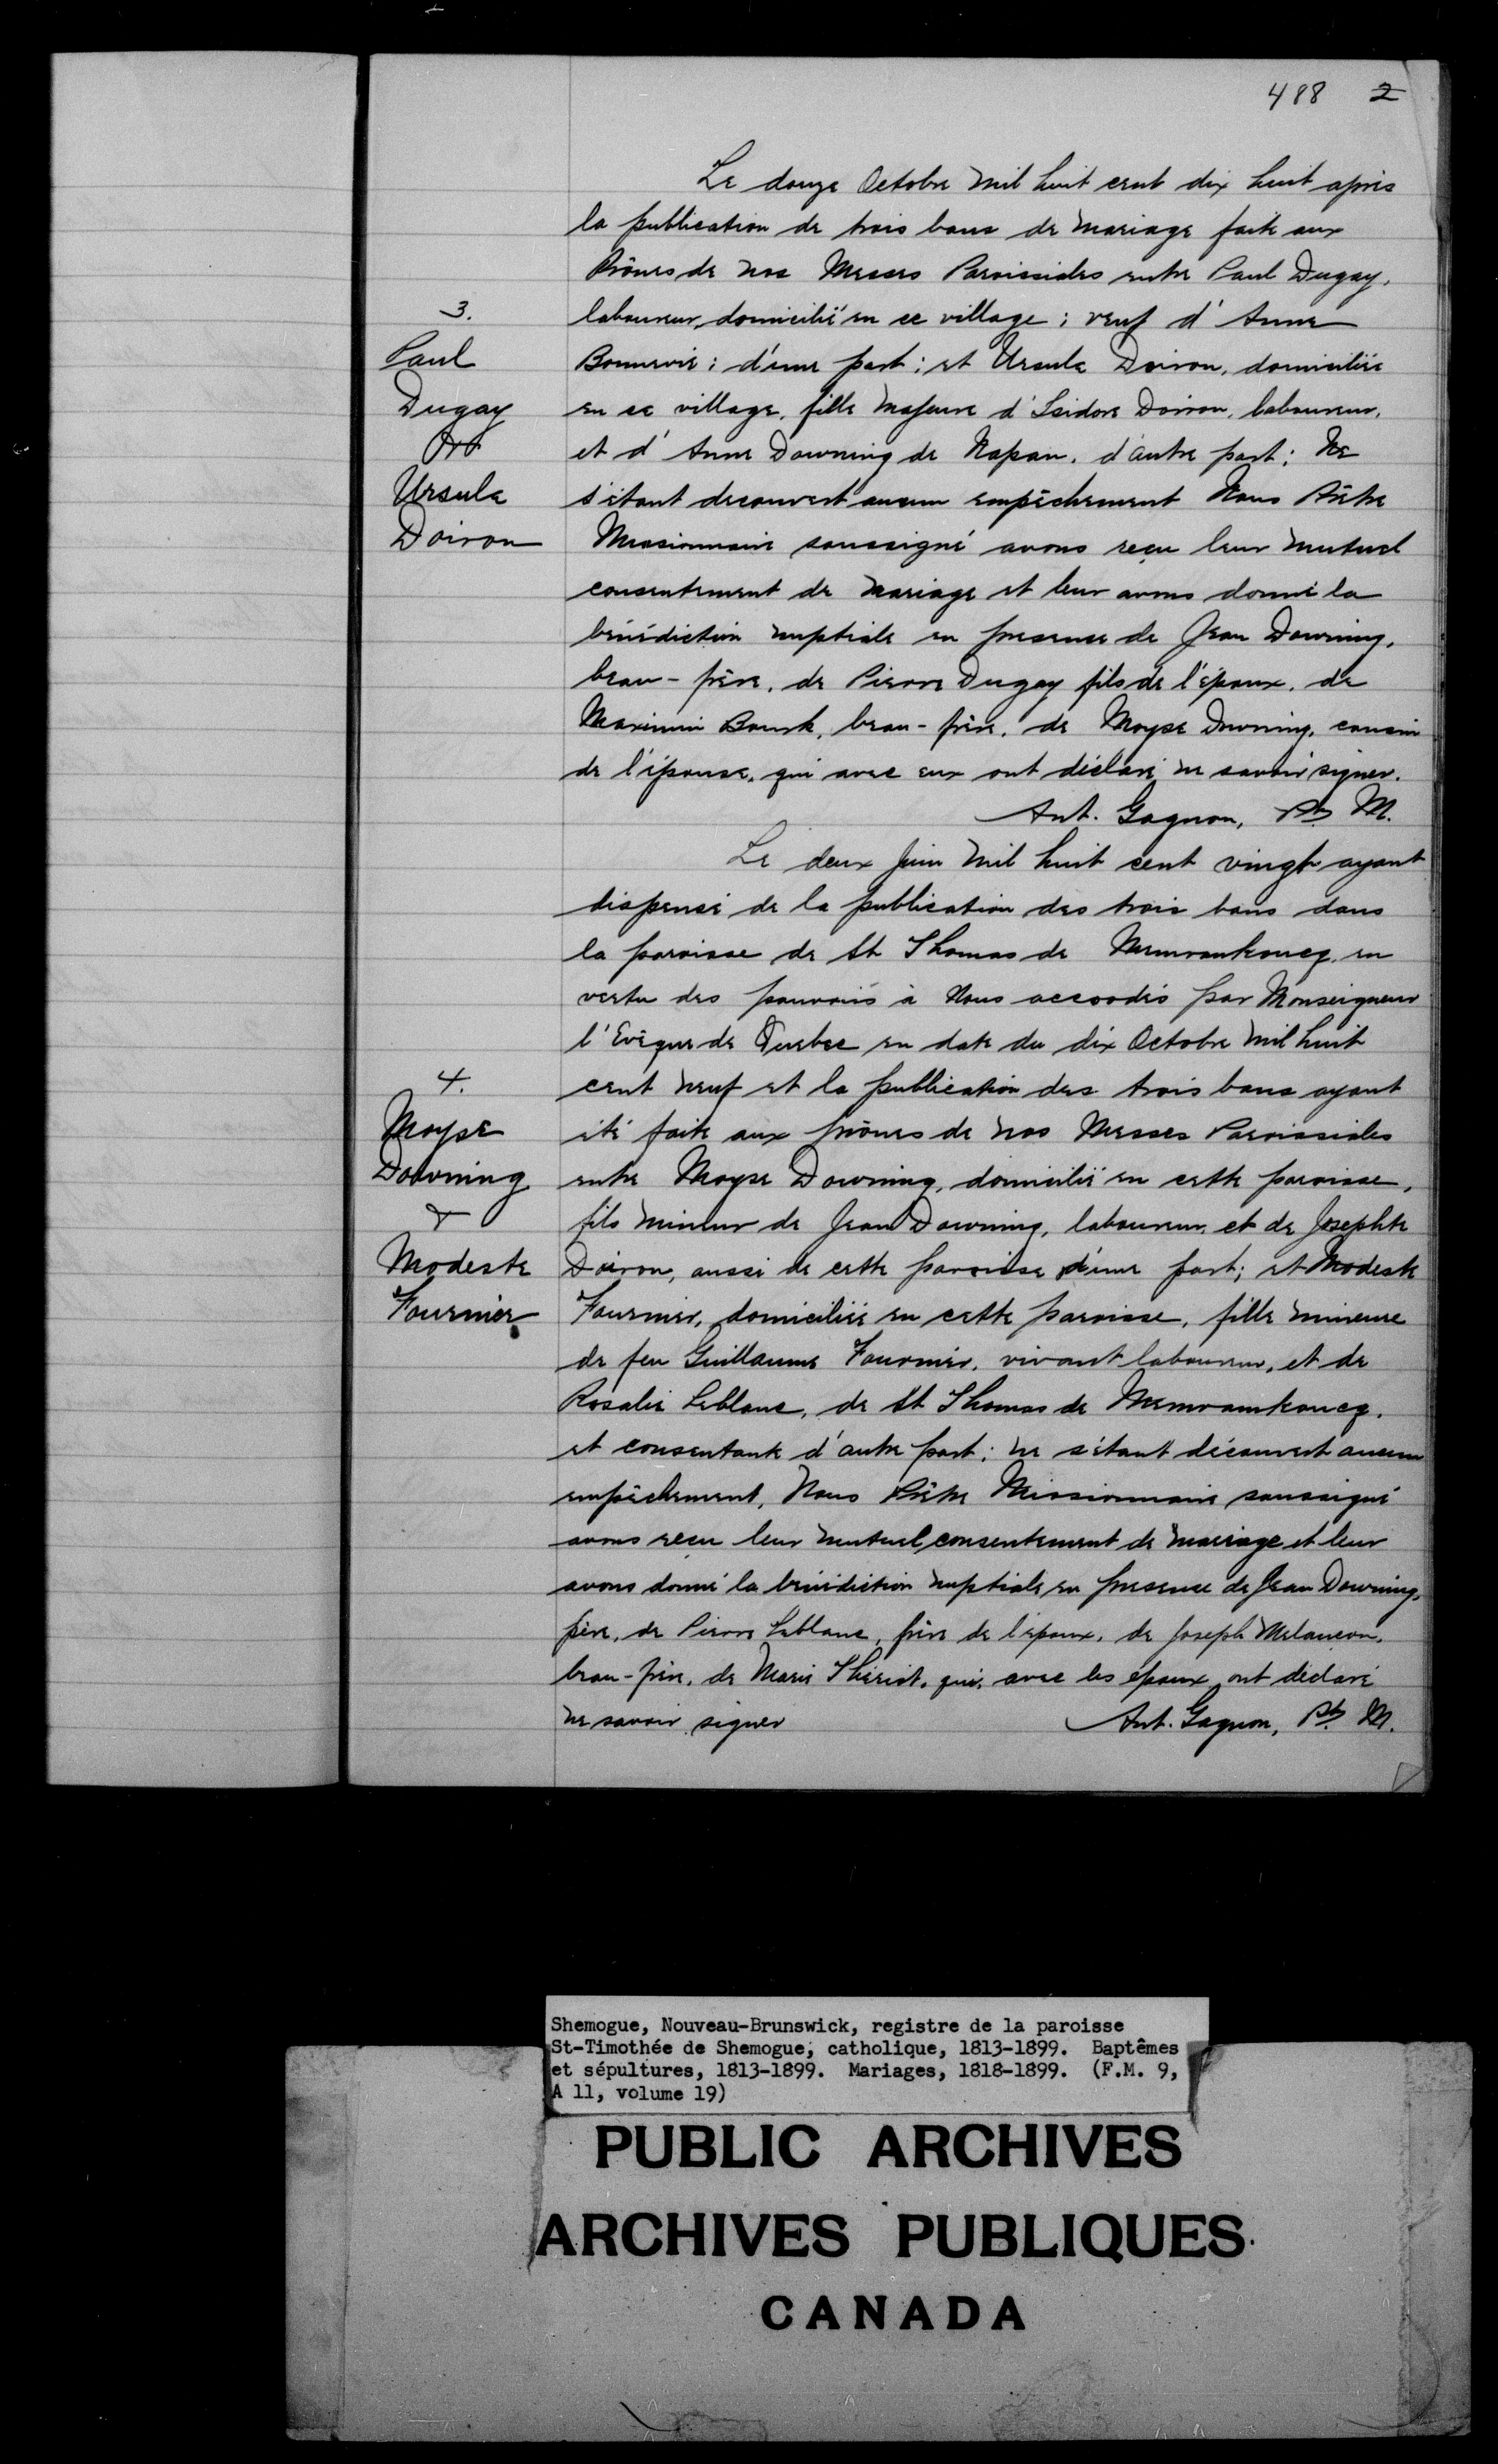 488 2
Le douze Octobre mil huit cent dix huit après
la publication de trois bans de mariage faite aux
Prônes de nos Messes Paroissiales entre Paul Dugay,
laboureur, domicilié en ce village; veuf d'Anne
Bonnevie; d'une part; et Ursule Doiron, domiciliée
en ce village, fille majeure d'Isidore Doiron, laboureur,
et d'Anne Downing de Napan, d'autre part; Ne
s'étant decouvert aucun empêchement Nous Prêtre
Missionnaire soussigné avons reçu leur mutuel
consentement de mariage et leur avons donné la
bénédiction nuptiale en presence de Jean Downing,
beau-frère, de Pierre Dugay fils de l'époux, de
Maximin Bourk, beau-frère, de Moyse Downing, cousin
de l'épouse, qui avec eux ont déclaré ne savoir signer.
Ant. Gagnon, Ptr M.
3.
Paul
Dugay
et
Ursule
Doiron
Le deux Juin mil huit cent vingt ayant
dispensé de la publication des trois bans dans
la paroisse de St Thomas de Memramkoucq, en
vertu des pouvoirs à Nous accordés par Monseigneur
l'Evêque de Quebec en date du dix Octobre mil huit
cent neuf et la publication des trois bans ayant
été faite aux prônes de nos Messes Paroissiales
entre Moyse Downing, domicilié en cette paroisse,
fils mineur de Jean Downing, laboureur, et de Josephte
Doiron, aussi de cette paroisse d'une part; et Modeste
Fournier, domiciliée en cette paroisse, fille mineure
de feu Guillaume Fournier, vivant laboureur, et de
Rosalie Leblanc, de St Thomas de Memramkoucq,
et consentante d'autre part; ne s'étant découvert aucun
empêchement, Nous Prêtre Missionnaire soussigné
avons recu leur mutuel consentement de mariage et leur
avons donné la bénédiction nuptiale en presence de Jean Downing,
père, de Pierre Leblanc, frère de l'époux, de Joseph Melançon,
beau-frère, de Marie Thériot, qui, avec les époux, ont déclaré
ne savoir signer Ant. Gagnon, Ptr M.
4.
Moyse
Downing
&
Modeste
Fournier
Shemogue, Nouveau-Brunswick, registre de la paroisse
St-Timothée de Shemogue, catholique, 1813-1899. Baptêmes
et sépultures, 1813-1899. Mariages, 1818-1899. (F.M. 9,
A 11, volume 19)
PUBLIC ARCHIVES
ARCHIVES PUBLIQUES
CANADA